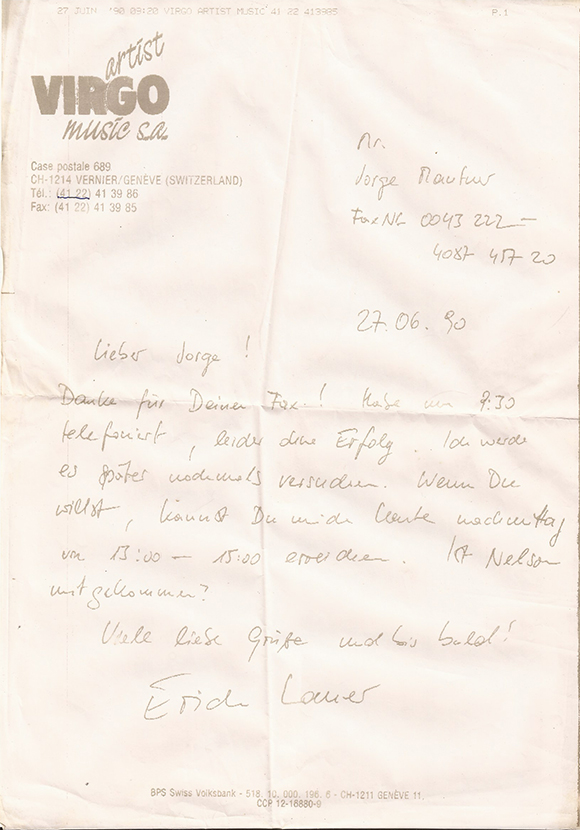 27 JUIN '90 09:20 VIRGO ARTIST MUSIC 41 22 413985 P.1
artist
VIRGO
music s.a.
Case postale 689
CH-1214 VERNIER/GENÈVE (SWITZERLAND)
Tél.: (41 22) 41 39 86
Fax: (41 22) 41 39 85
Mr.
Jorge
Fax NR 0043 222 —
4087 457 20
27.06.90
Lieber Jorge!
Danke für Deinen Fax! Habe um 9:30
telefoniert, leider ohne Erfolg. Ich werde
es später nochmals versuchen. Wenn Du
willst, kannst Du mich heute nachmittag
von 13:00 — 15:00 erreichen. Ist Nelson
mitgekommen?
Viele liebe Grüße und bis bald!
Erich
BPS Swiss Volksbank - 518. 10. 000. 196. 6 - CH-1211 GENÈVE 11.
CCP 12-16680-9